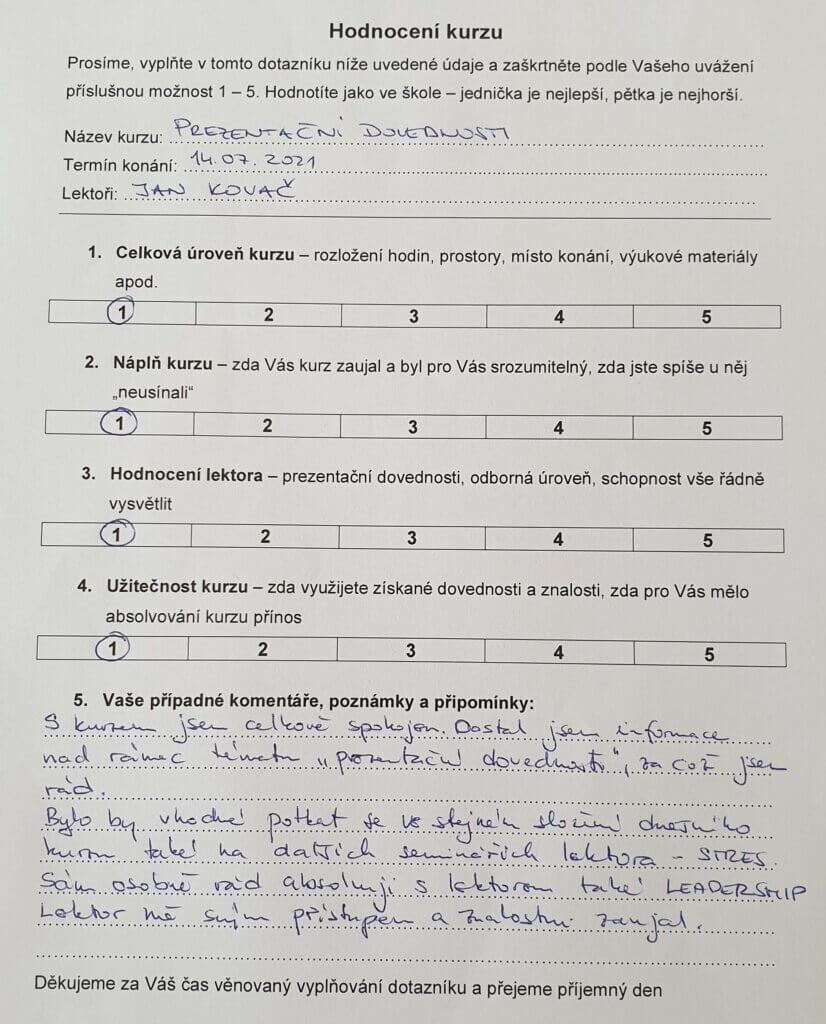 Hodnocení kurzu
Prosíme, vyplňte v tomto dotazníku níže uvedené údaje a zaškrtněte podle Vašeho uvážení
příslušnou možnost 1 – 5. Hodnotíte jako ve škole – jednička je nejlepší, pětka je nejhorší.
Název kurzu: PREZENTAČNÍ DOVEDNOSTI
Termín konání: 14.07.2021
Lektoři: JAN KOVAČ
1. Celková úroveň kurzu – rozložení hodin, prostory, místo konání, výukové materiály
apod.
1 2 3 4 5
2. Náplň kurzu – zda Vás kurz zaujal a byl pro Vás srozumitelný, zda jste spíše u něj
„neusínali“
1 2 3 4 5
3. Hodnocení lektora – prezentační dovednosti, odborná úroveň, schopnost vše řádně
vysvětlit
1 2 3 4 5
4. Užitečnost kurzu – zda využijete získané dovednosti a znalosti, zda pro Vás mělo
absolvování kurzu přínos
1 2 3 4 5
5. Vaše případné komentáře, poznámky a připomínky:
S kurzem jsem celkově spokojen. Dostal jsem informace
nad rámec tématu „prezentační dovednosti“, za což jsem
rád.
Bylo by vhodné potkat se ve stejném složení dnešního
kurzu také na dalších seminářích lektora - STRES.
Sám osobně rád absolvuji s lektorem také LEADERSHIP
Lektor mě svým přístupem a znalostmi zaujal.
Děkujeme za Váš čas věnovaný vyplňování dotazníku a přejeme příjemný den